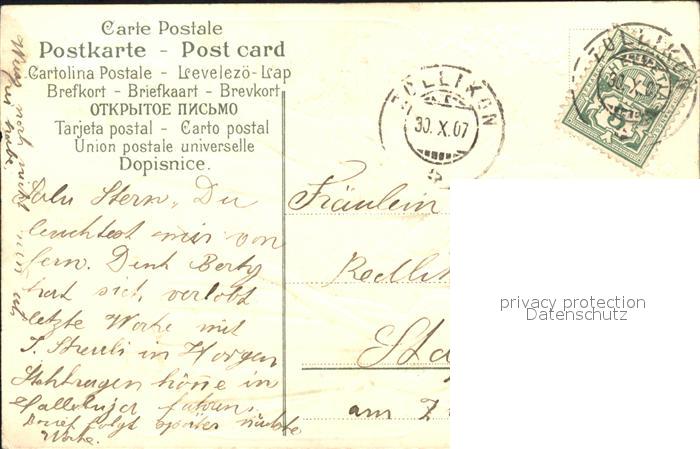 Carte Postale
Postkarte - Post card
Cartolina Postale - Levelező-Lap
Brefkort - Briefkaart - Brevkort
ОТКРЫТОЕ ПИСЬМО
Tarjeta postal - Carto postal
Union postale universelle
Dopisnice.
ZOLLIKON
30.X.07
ZOLLIKON
30.X.07
Stern, Du
leuchtest mir von
fern. Denk Berty
hat sich verlobt
letzte Woche mit
J. Streuli in Horgen
in
Halleluja fahren,
folgt später nächste
Woche.
noch nicht
Fräulein
Redli
Stä
am Z
privacy protection
Datenschutz